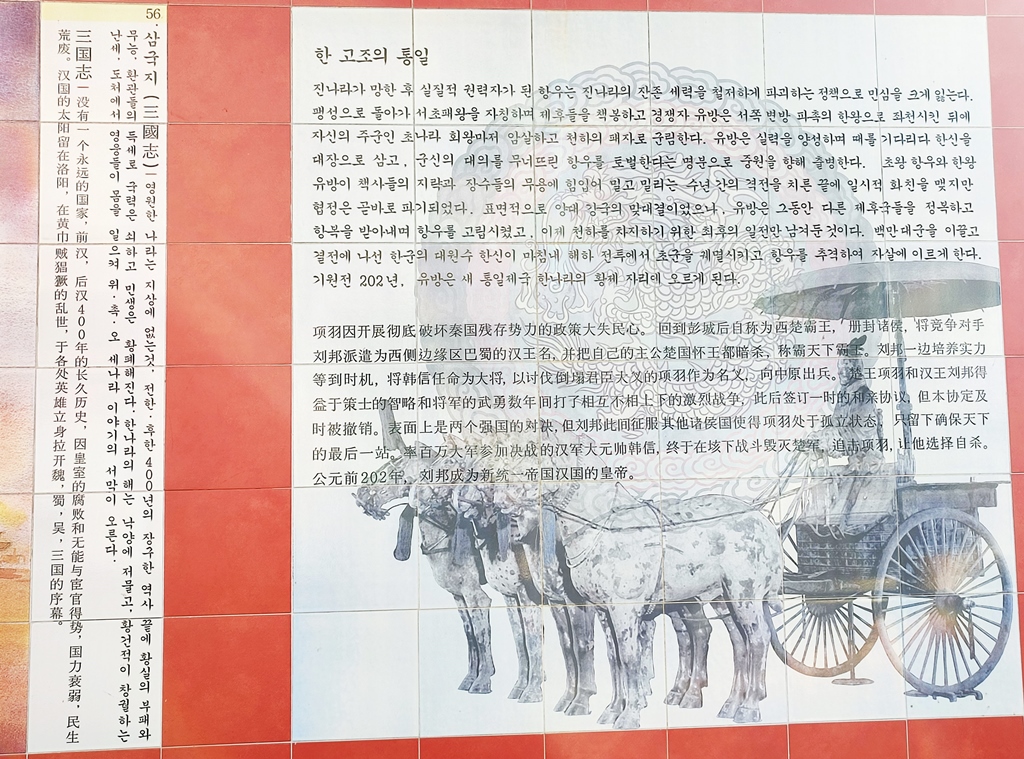 56.
삼국지(三國志) – 영원한 나라는 지상에 없는것, 전한·후한 400년의 장구한 역사 끝에 황실의 부패와
무능, 환관들의 득세로 국력은 쇠하고 민생은 황폐해진다. 한나라의 해는 낙양에 저물고, 황건적이 창궐하는
난세, 도처에서 영웅들이 몸을 일으켜 위·촉·오 세나라 이야기의 서막이 오른다.
三国志 – 没有一个永远的国家, 前汉, 后汉400年的长久历史, 因皇室的腐败和无能与宦官得势, 国力衰弱, 民生
荒废。汉国的太阳留在洛阳, 在黄巾贼猖獗的乱世, 于各处英雄立身拉开魏, 蜀, 吴, 三国的序幕。
한 고조의 통일
진나라가 망한 후 실질적 권력자가 된 항우는 진나라의 잔존 세력을 철저하게 파괴하는 정책으로 민심을 크게 잃는다.
팽성으로 돌아가 서초패왕을 자칭하며 제후들을 책봉하고 경쟁자 유방은 서쪽 변방 파촉의 한왕으로 좌천시킨 뒤에
자신의 주군인 초나라 회왕마저 암살하고 천하의 패자로 군림한다. 유방은 실력을 양성하며 때를 기다리다 한신을
대장으로 삼고, 군신의 대의를 무너뜨린 항우를 토벌한다는 명분으로 중원을 향해 출병한다. 초왕 항우와 한왕
유방이 책사들의 지략과 장수들의 무용에 힘입어 밀고 밀리는 수년 간의 격전을 치른 끝에 일시적 화친을 맺지만
협정은 곧바로 파기되었다. 표면적으로 양대 강국의 맞대결이었으나, 유방은 그동안 다른 제후국들을 정복하고
항복을 받아내며 항우를 고립시켰고, 이제 천하를 차지하기 위한 최후의 일전만 남겨둔 것이다. 백만 대군을 이끌고
결전에 나선 한군의 대원수 한신이 마침내 해하 전투에서 초군을 궤멸시키고 항우를 추격하여 자살에 이르게 한다.
기원전 202년, 유방은 새 통일제국 한나라의 황제 자리에 오르게 된다.
项羽因开展彻底破坏秦国残存势力的政策大失民心。 回到彭城后自称为西楚霸王, 册封诸侯, 将竞争对手
刘邦派遣为西侧边缘区巴蜀的汉王名, 并把自己的主公楚国怀王都暗杀, 称霸天下霸王。刘邦一边培养实力
等到时机, 将韩信任命为大将, 以讨伐倒塌君臣大义的项羽作为名义, 向中原出兵。楚王项羽和汉王刘邦得
益于策士的智略和将军的武勇数年间打了相互不相上下的激烈战争, 此后签订一时的和亲协议, 但本协定及
时被撤销。表面上是两个强国的对决, 但刘邦此间征服其他诸侯国使得项羽处于孤立状态, 只留下确保天下
的最后一站。率百万大军参加决战的汉军大元帅韩信, 终于在垓下战斗毁灭楚军, 追击项羽, 让他选择自杀。
公元前202年, 刘邦成为新统一帝国汉国的皇帝。